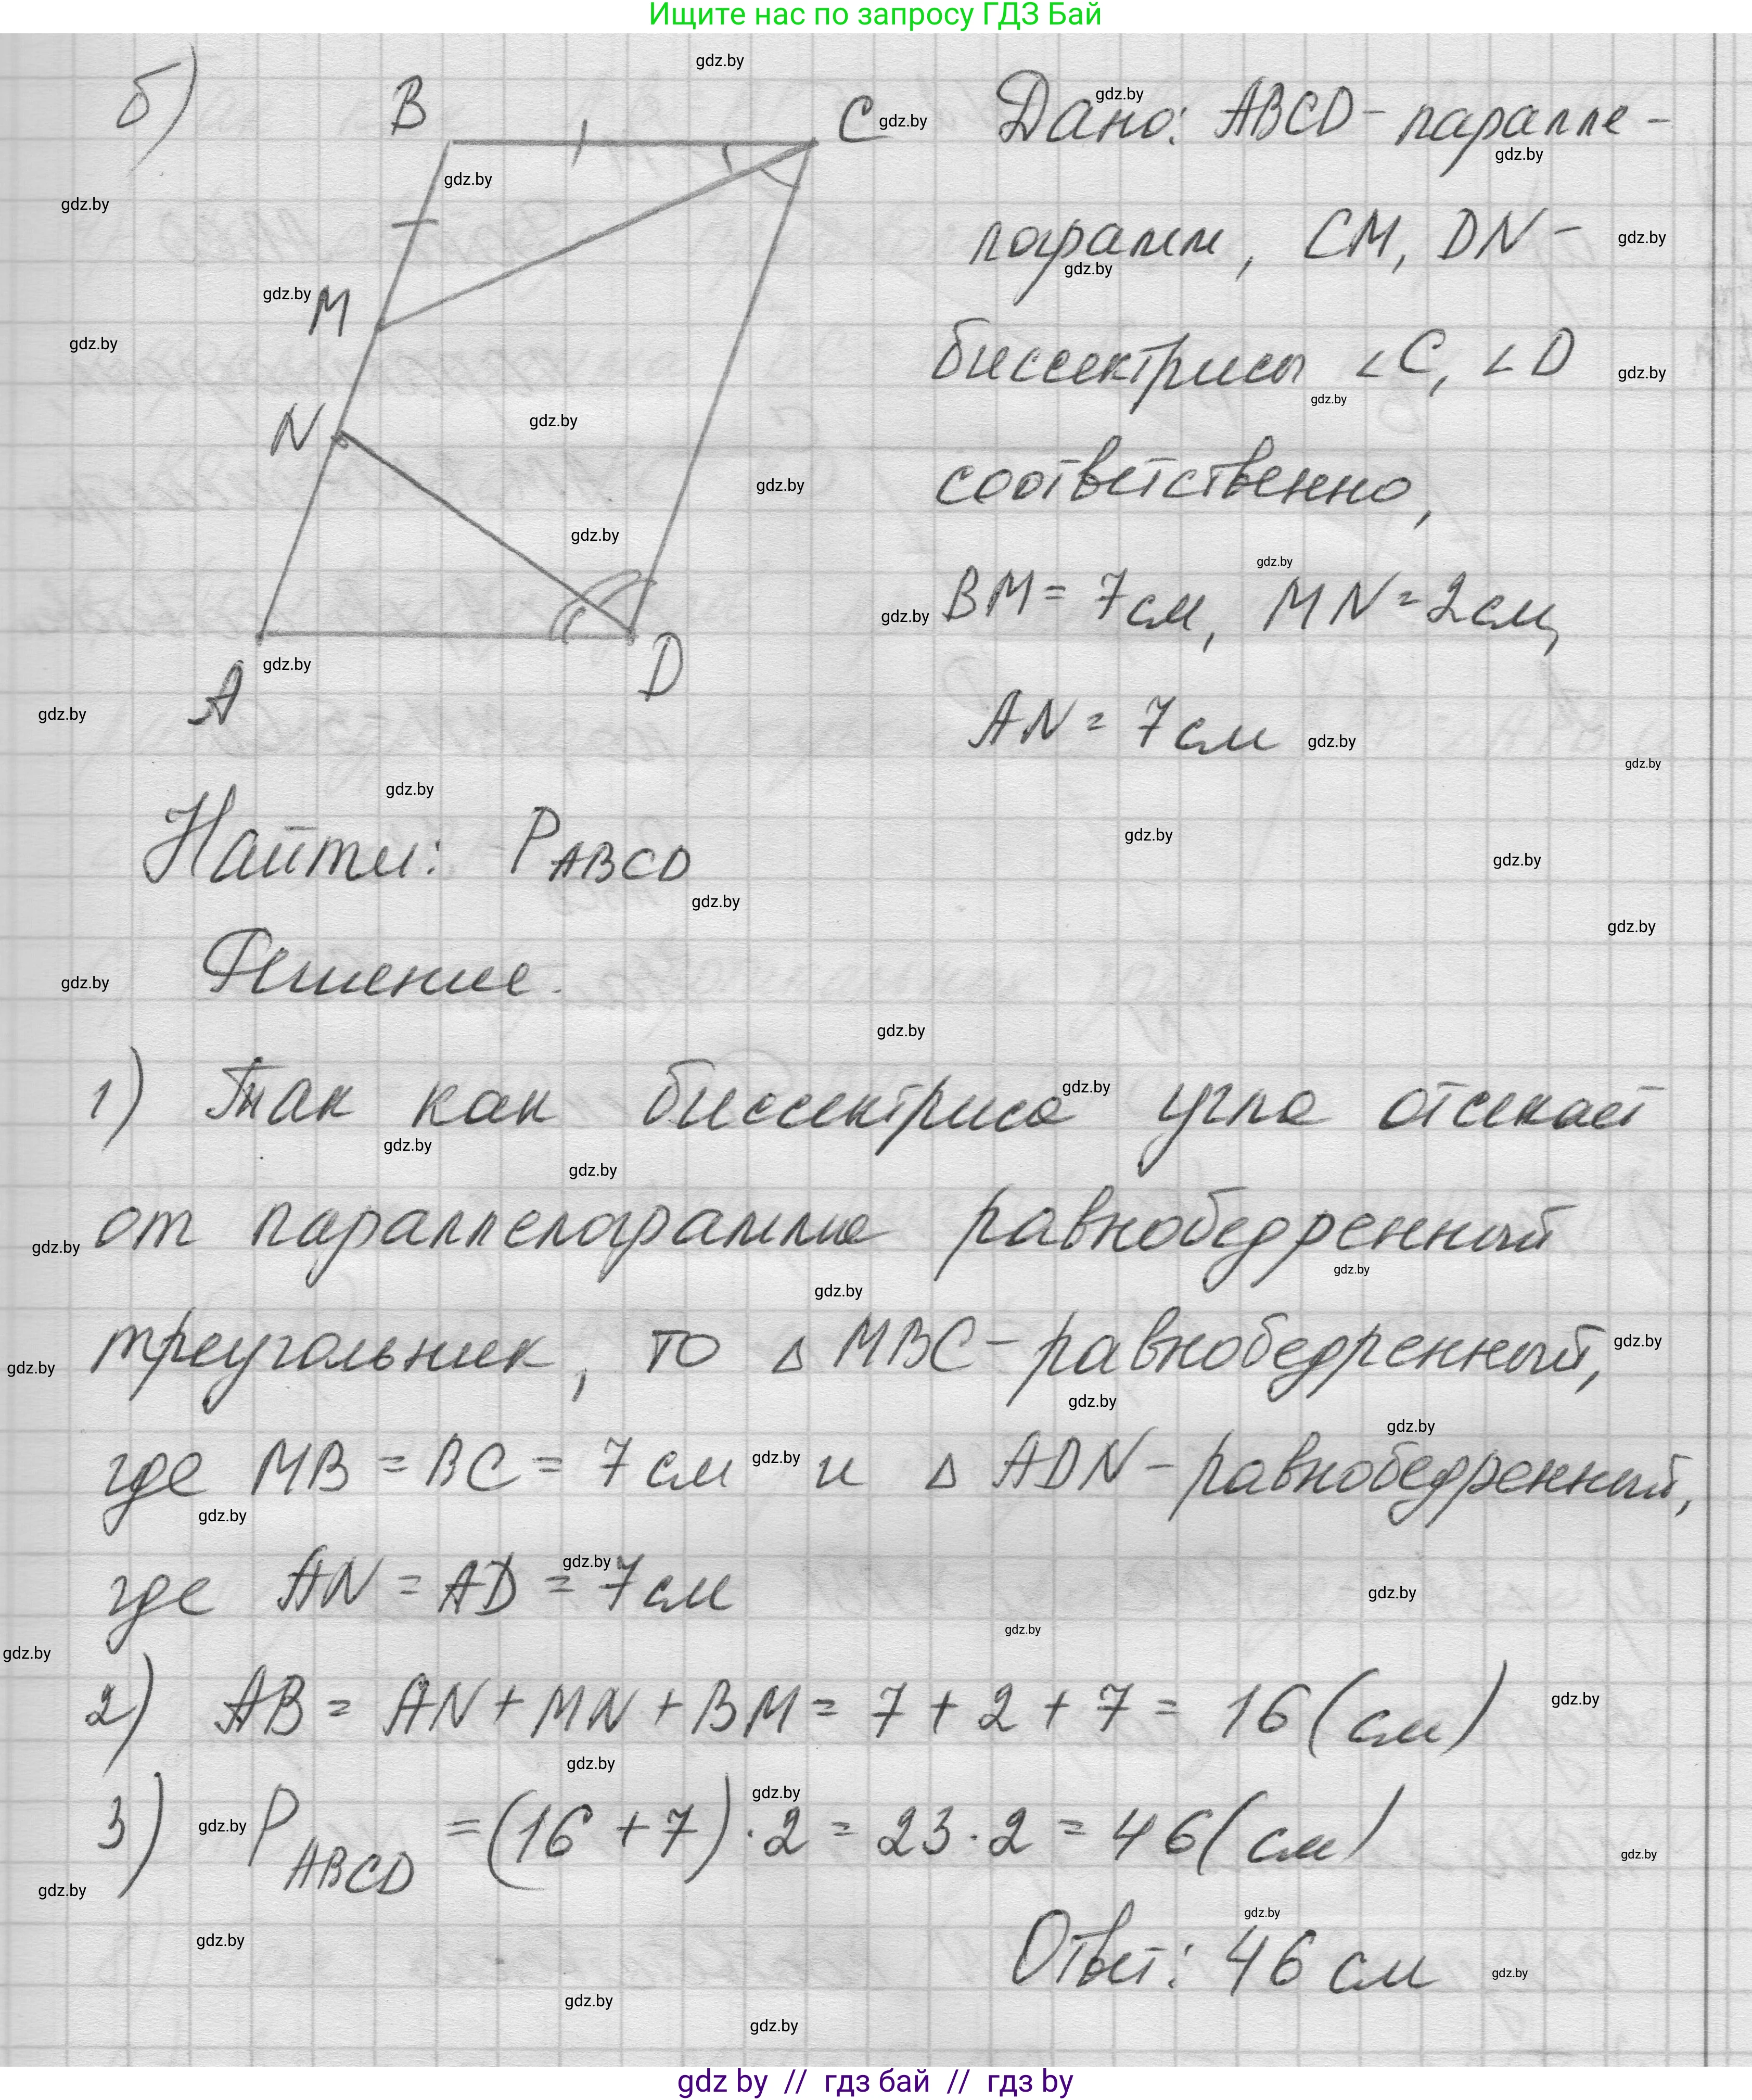 Ищите нас по запросу ГДЗ Бай
б)
B
C
M
N
A
D
Дано: ABCD - паралле-
лограмм, CM, DN -
биссектрисы ∠C, ∠D
соответственно,
BM = 7см, MN = 2см,
AN = 7см
Найти: P ABCD
Решение.
1) Так как биссектриса угла отсекает
от параллелограмма равнобедренный
треугольник, то △ MBC - равнобедренный,
где MB = BC = 7 см и △ ADN - равнобедренный,
где AN = AD = 7 см
2) AB = AN + MN + BM = 7 + 2 + 7 = 16 (см)
3) P ABCD = (16 + 7) · 2 = 23 · 2 = 46 (см)
Ответ: 46 см
gdz by // гдз бай // гдз by